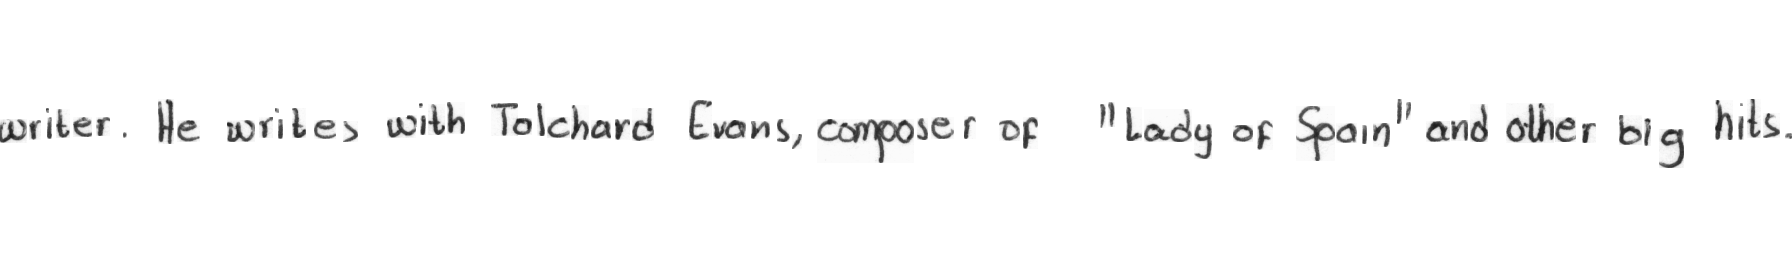 writer. He writes with Tolchard Evans, composer of "Lady of Spain" and other big hits.